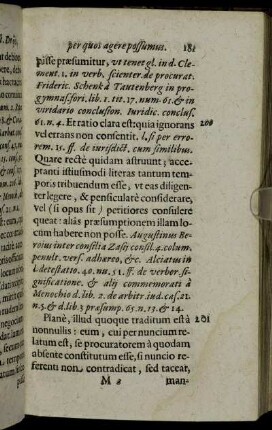 per quos agere possumus. 181
pisse præsumitur, vt tenet gl. ind. Cle-
ment. 1. in verb. scienter. de procurat.
Frideric. Schenk à Tautenberg in pro-
gymnas. fori. lib. 1. tit. 17. num. 61. & in
viridario conclusion. Iuridic. conclus.
61. n. 4. Et ratio clara est: quia ignorans 200
vel errans non consentit. l. si per erro-
rem. 15. ff. de iurisdict. cum similibus.
Quare rectè quidam astruunt; acce-
ptanti istiusmodi literas tantum tem-
poris tribuendum esse, vt eas diligen-
ter legere, & pensiculatè considerare,
vel (si opus sit) peritiores consulere
queat: aliàs præsumptionem illam lo-
cum habere non posse. Augustinus Be-
roius inter consilia Zasij consil. 4. column.
penult. vers. adhæreo, &c. Alciatus in
l. detestatio. 40. nu. 51. ff. de verbor. si-
gnificatione. & alij commemorati à
Menochio d. lib. 2. de arbitr. ind. cas. 21.
n. 5. & d. lib. 3 præsump. 65. n. 13. & 14.
Planè, illud quoque traditum est à 201
nonnullis: eum, cui per nuncium re-
latum est, se procuratorem à quodam
absente constitutum esse, si nuncio re-
ferenti non contradicat, sed taceat,
man-